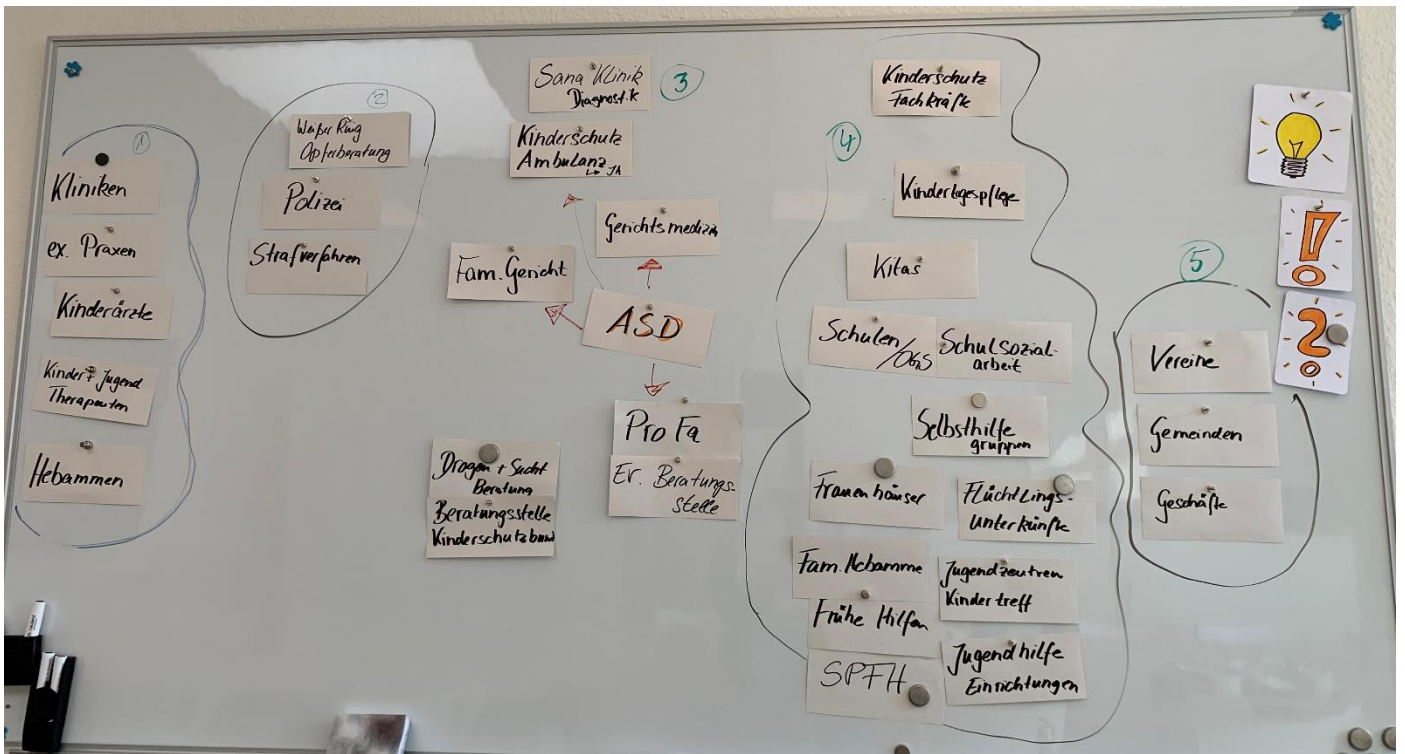 1
Kliniken
ex. Praxen
Kinderärzte
Kinder + Jugend
Therapeuten
Hebammen
2
Weißer Ring
Opferberatung
Polizei
Strafverfahren
3
Sana Klinik
Diagnostik
Kinderschutz
Ambulanz
↳ JA
Gerichtsmedizin
Fam. Gericht
ASD
Pro Fa
Ev. Beratungs-
stelle
Drogen + Sucht
Beratung
Beratungsstelle
Kinderschutzbund
4
Kinderschutz
Fachkräfte
Kindertagespflege
Kitas
Schulen
/OGS
Schulsozial-
arbeit
Selbsthilfe
gruppen
Frauenhäuser
Flüchtlings-
unterkünfte
Fam. Hebamme
Jugendzentren
Kindertreff
Frühe Hilfen
SPFH
Jugendhilfe
Einrichtungen
5
Vereine
Gemeinden
Geschäfte
!
?